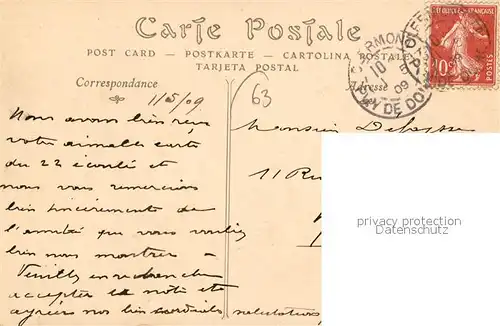 Carte Postale
POST CARD — POSTKARTE — CARTOLINA POSTALE
TARJETA POSTAL
Correspondance
Adresse
11/5/09
63
Nous avons bien reçu
votre aimable carte
du 22 écoulé et
nous vous remercions
bien sincèrement de
l'amitié que vous voulez
bien nous montrer
Veuillez en revanche
accepter la notre et
agréer nos bien cordiales salutations
Monsieur
11 Ru
privacy protection
Datenschutz
CLERMONT
PUY DE DOME
10
09
RÉPUBLIQUE FRANÇAISE
10c
POSTES